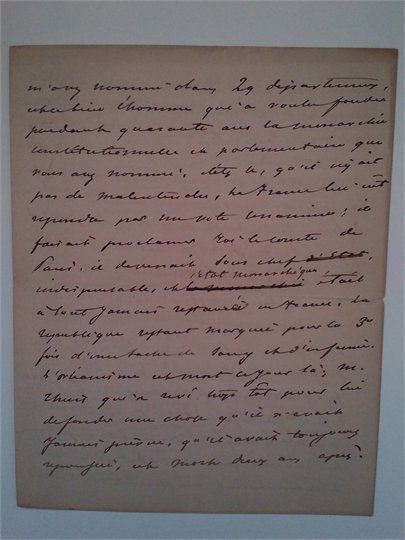 m'avez nommé dans 29 départements,
c'est bien l'homme qui a voulu fonder
pendant quarante ans la monarchie
constitutionnelle et parlementaire que
vous avez nommé, dites le, qu'il n'y ait
pas de malentendu, la France lui eût
répondu par un vote unanime; il
faisait proclamer Roi le Comte de
Paris, il devenait son chef d'Etat,
indispensable, et la monarchie l'état monarchique était
à tout jamais restauré en France, la
république restant marquée pour la 3e
fois d'une tache de sang et d'infamie.
L'orléanisme est mort ce jour là; M.
Thiers qui a rêvé trop tôt pour lui
de fonder une chose qu'il n'avait
jamais prévue, qu'il avait toujours
repoussée, est mort deux ans après.